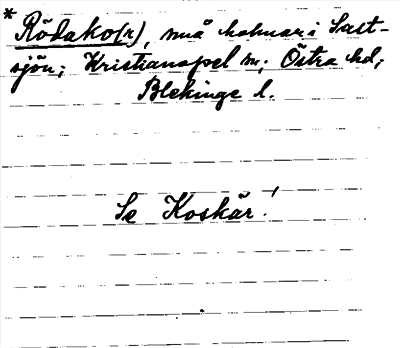 * Rödako(r), små holmar i Salt-
sjön; Kristianopel sn; Östra hd;
Blekinge l.
Se Koskär!